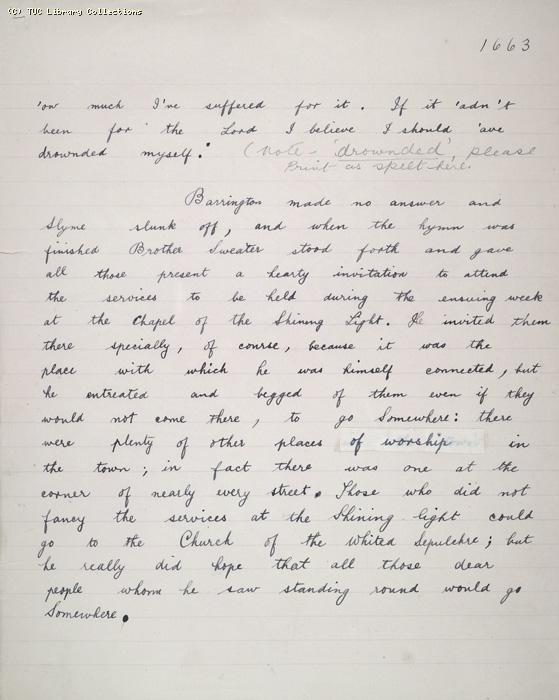 (C) TUC Library Collections
1663
'ow much I've suffered for it. If it 'adn't
been for the Lord I believe I should 'ave
drownded myself."
(note - 'drownded', please
Print as spelt here.
Barrington made no answer and
Slyme slunk off, and when the hymn was
finished Brother Sweater stood forth and gave
all those present a hearty invitation to attend
the services to be held during the ensuing week
at the Chapel of the Shining Light. He invited them
there specially, of course, because it was the
place with which he was himself connected, but
he entreated and begged of them even if they
would not come there, to go Somewhere: there
were plenty of other places of worship in
the town; in fact there was one at the
corner of nearly every street. Those who did not
fancy the services at the Shining Light could
go to the Church of the Whited Sepulchre; but
he really did hope that all those dear
people whom he saw standing round would go
Somewhere.